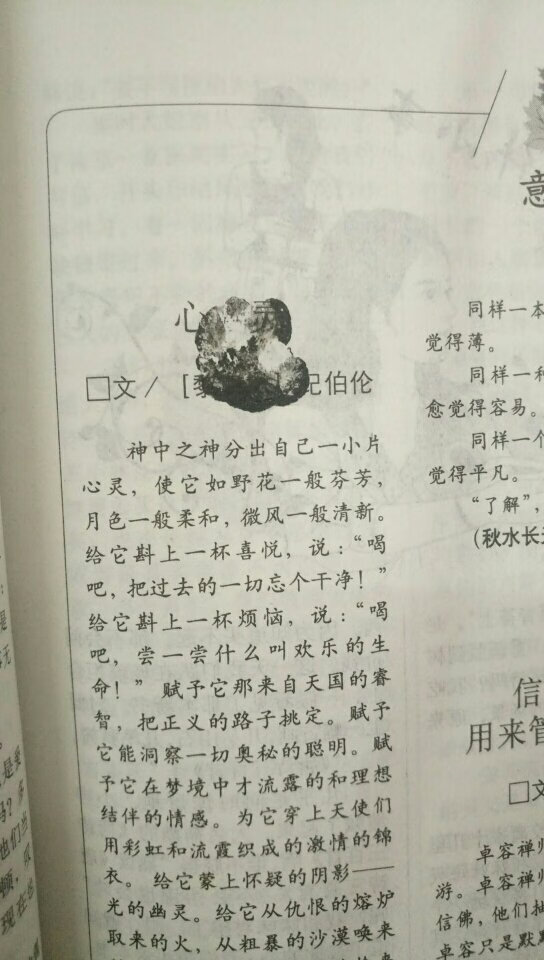 心灵
□文/[黎 纪伯伦
神中之神分出自己一小片
心灵，使它如野花一般芬芳，
月色一般柔和，微风一般清新。
给它斟上一杯喜悦，说：“喝
吧，把过去的一切忘个干净！”
给它斟上一杯烦恼，说：“喝
吧，尝一尝什么叫欢乐的生
命！” 赋予它那来自天国的睿
智，把正义的路子挑定。赋予
它能洞察一切奥秘的聪明。赋
予它在梦境中才流露的和理想
结伴的情感。为它穿上天使们
用彩虹和流霞织成的激情的锦
衣。给它蒙上怀疑的阴影——
光的幽灵。给它从仇恨的熔炉
取来的火，从粗暴的沙漠唤来
意
同样一本
觉得薄。
同样一种
愈觉得容易。
同样一个
觉得平凡。
“了解”，
（秋水长天
信
用来管
□文
卓容禅师
游。卓容禅师
信佛，他们抽
卓容只是默默